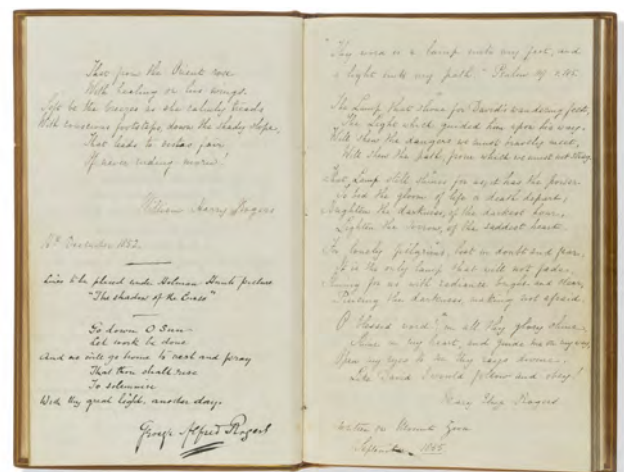 That from the Orient rose
With healing on his wings.
Soft be the breezes as she calmly treads
With conscious footsteps, down the shady slope,
That leads to vistas fair
Of never ending morn!
William Harry Rogers
December 1852.
Lines to be placed under Holman Hunt's picture
"The shadow of the Cross"
Go down O Sun
Let work be done
And we will go home to rest and pray
That thou shalt rise
To solemnise
With thy great light, another day.
George Alfred Rogers
"Thy word is a lamp unto my feet, and
a light unto my path." Psalm 119 v. 105.
The Lamp that shone for David's wandering feet,
The Light which guided him upon his way.
Will show the dangers we must bravely meet,
Will show the path, from which we must not stray.
That Lamp still shines for us, it has the power
To bid the gloom of life & death depart;
Brighten the darkness, of the darkest hour,
Lighten the sorrow, of the saddest heart.
To lonely pilgrims, lost in doubt and fear,
It is the only lamp that will not fade,
for us with radiance bright and clear,
Piercing the darkness, making not afraid.
O blessed word! in all thy glory shine,
Shine in my heart, and guide me on my way,
Open my eyes to see thy rays divine,
Like David I would follow and obey!
Mary Eliza Rogers
Written on Mount Zion
September 1855